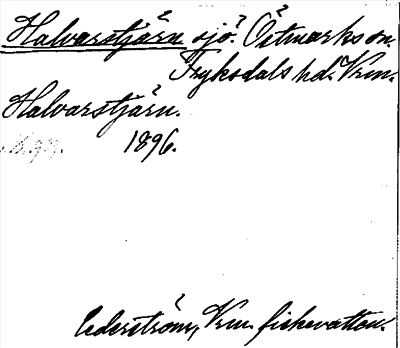 Halvarstjärn sjö. Östmarks sn.
Fryksdals hd. Vrm.
Halvarstjärn.
1896.
Cederström, Vrm. fiskevatten.